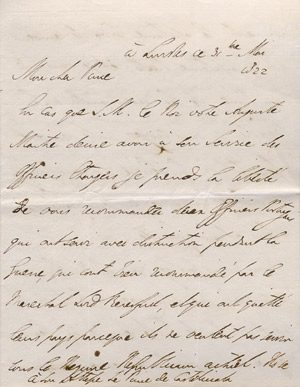 à Londres ce 31 Mai
1822
Mon cher Prince
En cas que S.M. le Roi votre Auguste
Maitre desire avoir à son service des
Officiers Etrangers je prends la liberté
de vous recommander deux Officiers
qui ont servi avec distinction pendant la
Guerre, qui sont recommandé par le
Marechal Lord Beresford, et qui ont quitté
leur pays parceque ils ne veulent pas servir
sous le Regime actuel. Ils
à le Prince de